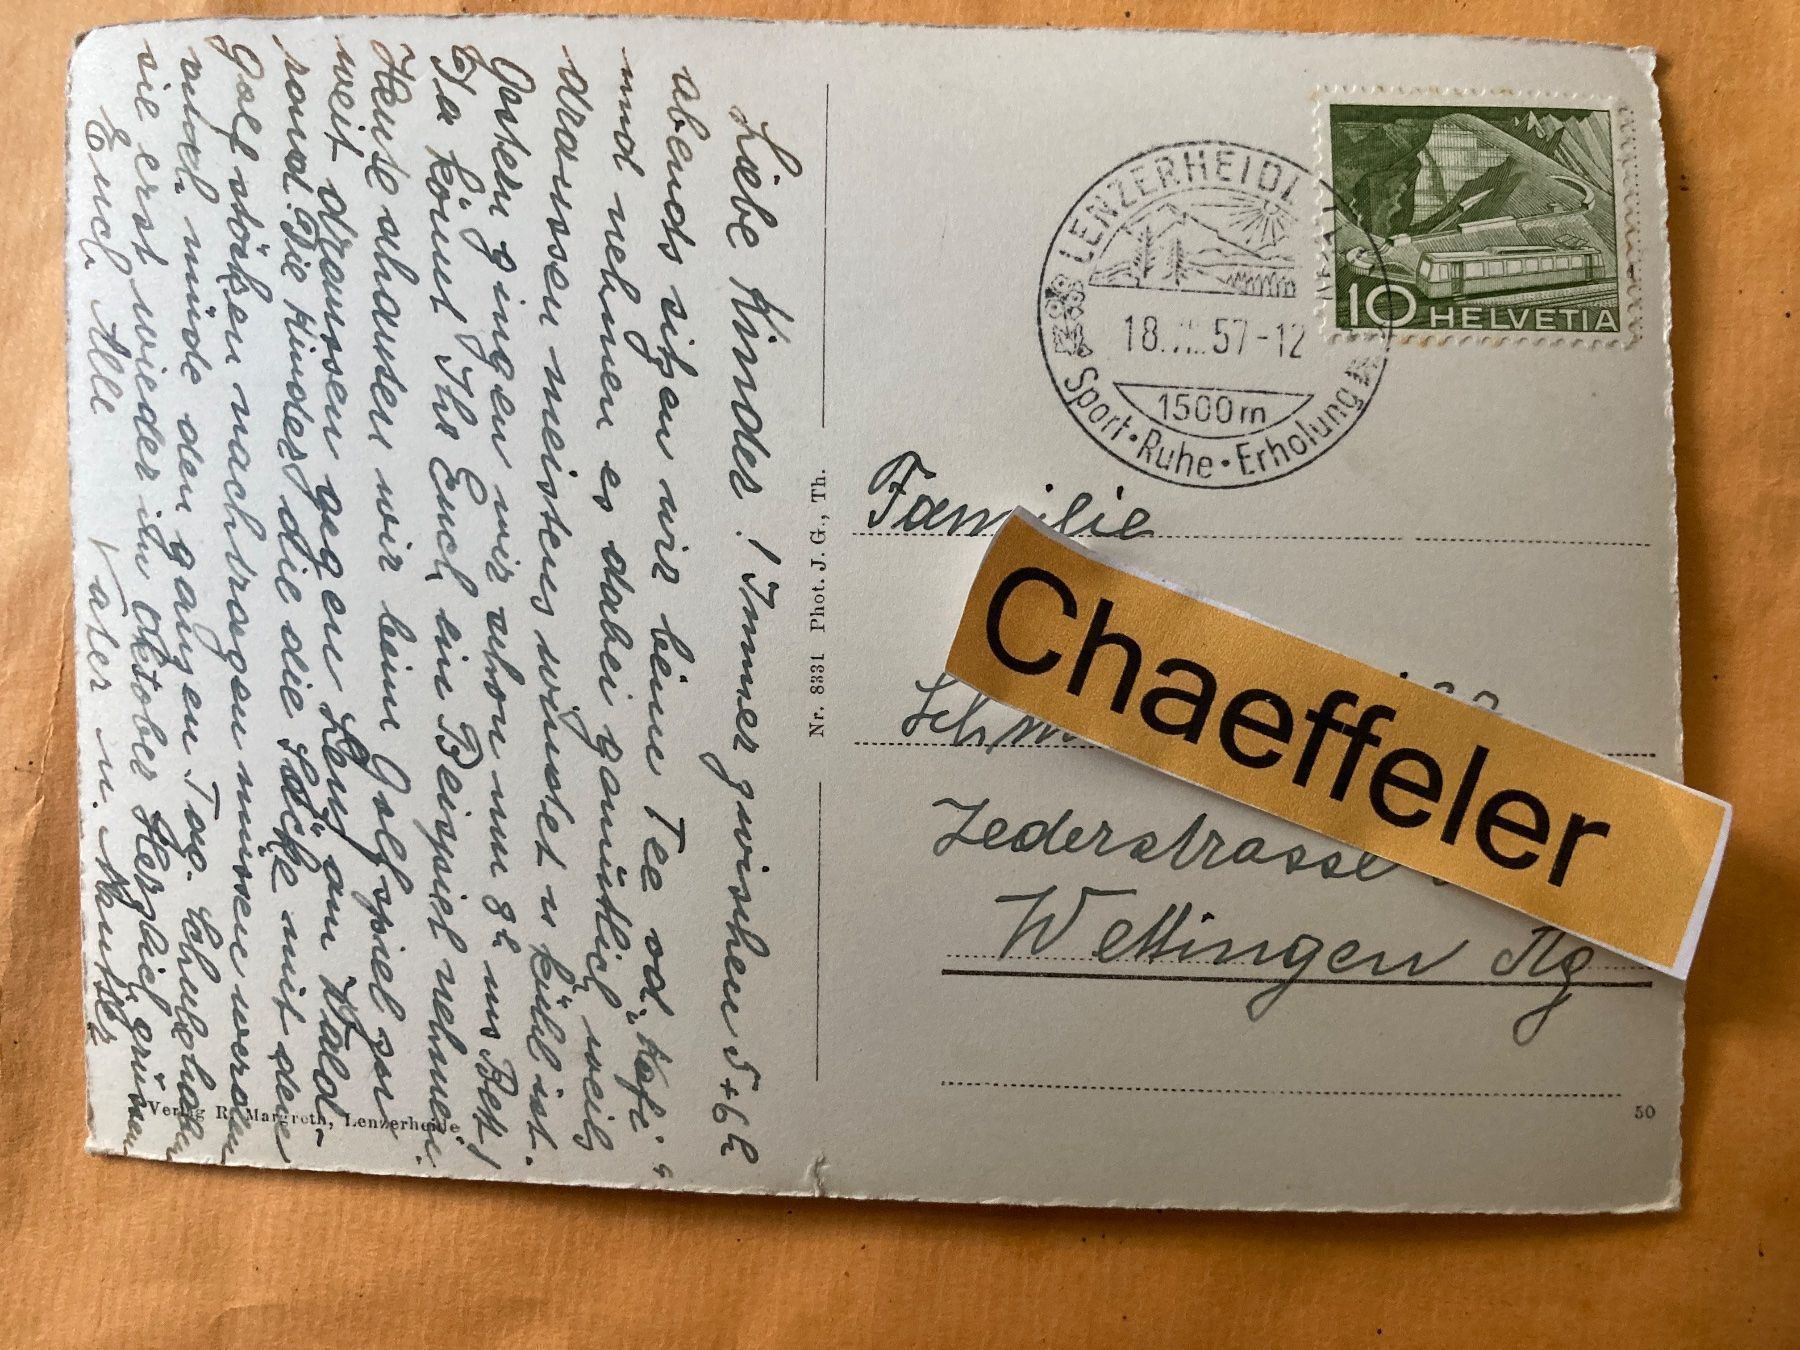 Liebe Kinder! Immer zwischen 5+6h
abends sitzen wir beim Tee od. "Kafi"
und nehmen es dabei gemütlich weil
draussen meistens windet u kühl ist.
Gestern gingen wir schon um 8h ins Bett!
Da könnt Ihr Euch ein Beispiel nehmen.
Heute schauten wir beim Golfspiel zu
weit draussen gegen Lenz am Wald-
rand. Die Kinder die die Säcke mit den
Golfstöcken nachtragen müssen werden
auch müde den ganzen Tag. Schule haben
sie erst wieder im Oktober Herzlich grüssen
Euch Alle Vater u. Mutter
Verlag R. Margreth, Lenzerheide
Nr. 8331 Phot. J. G., Th.
LENZERHEIDE
18. 57-12
1500 m
Sport · Ruhe · Erholung
10 HELVETIA
Familie
Chaeffeler
Zederstrasse
Wettingen Ag
50